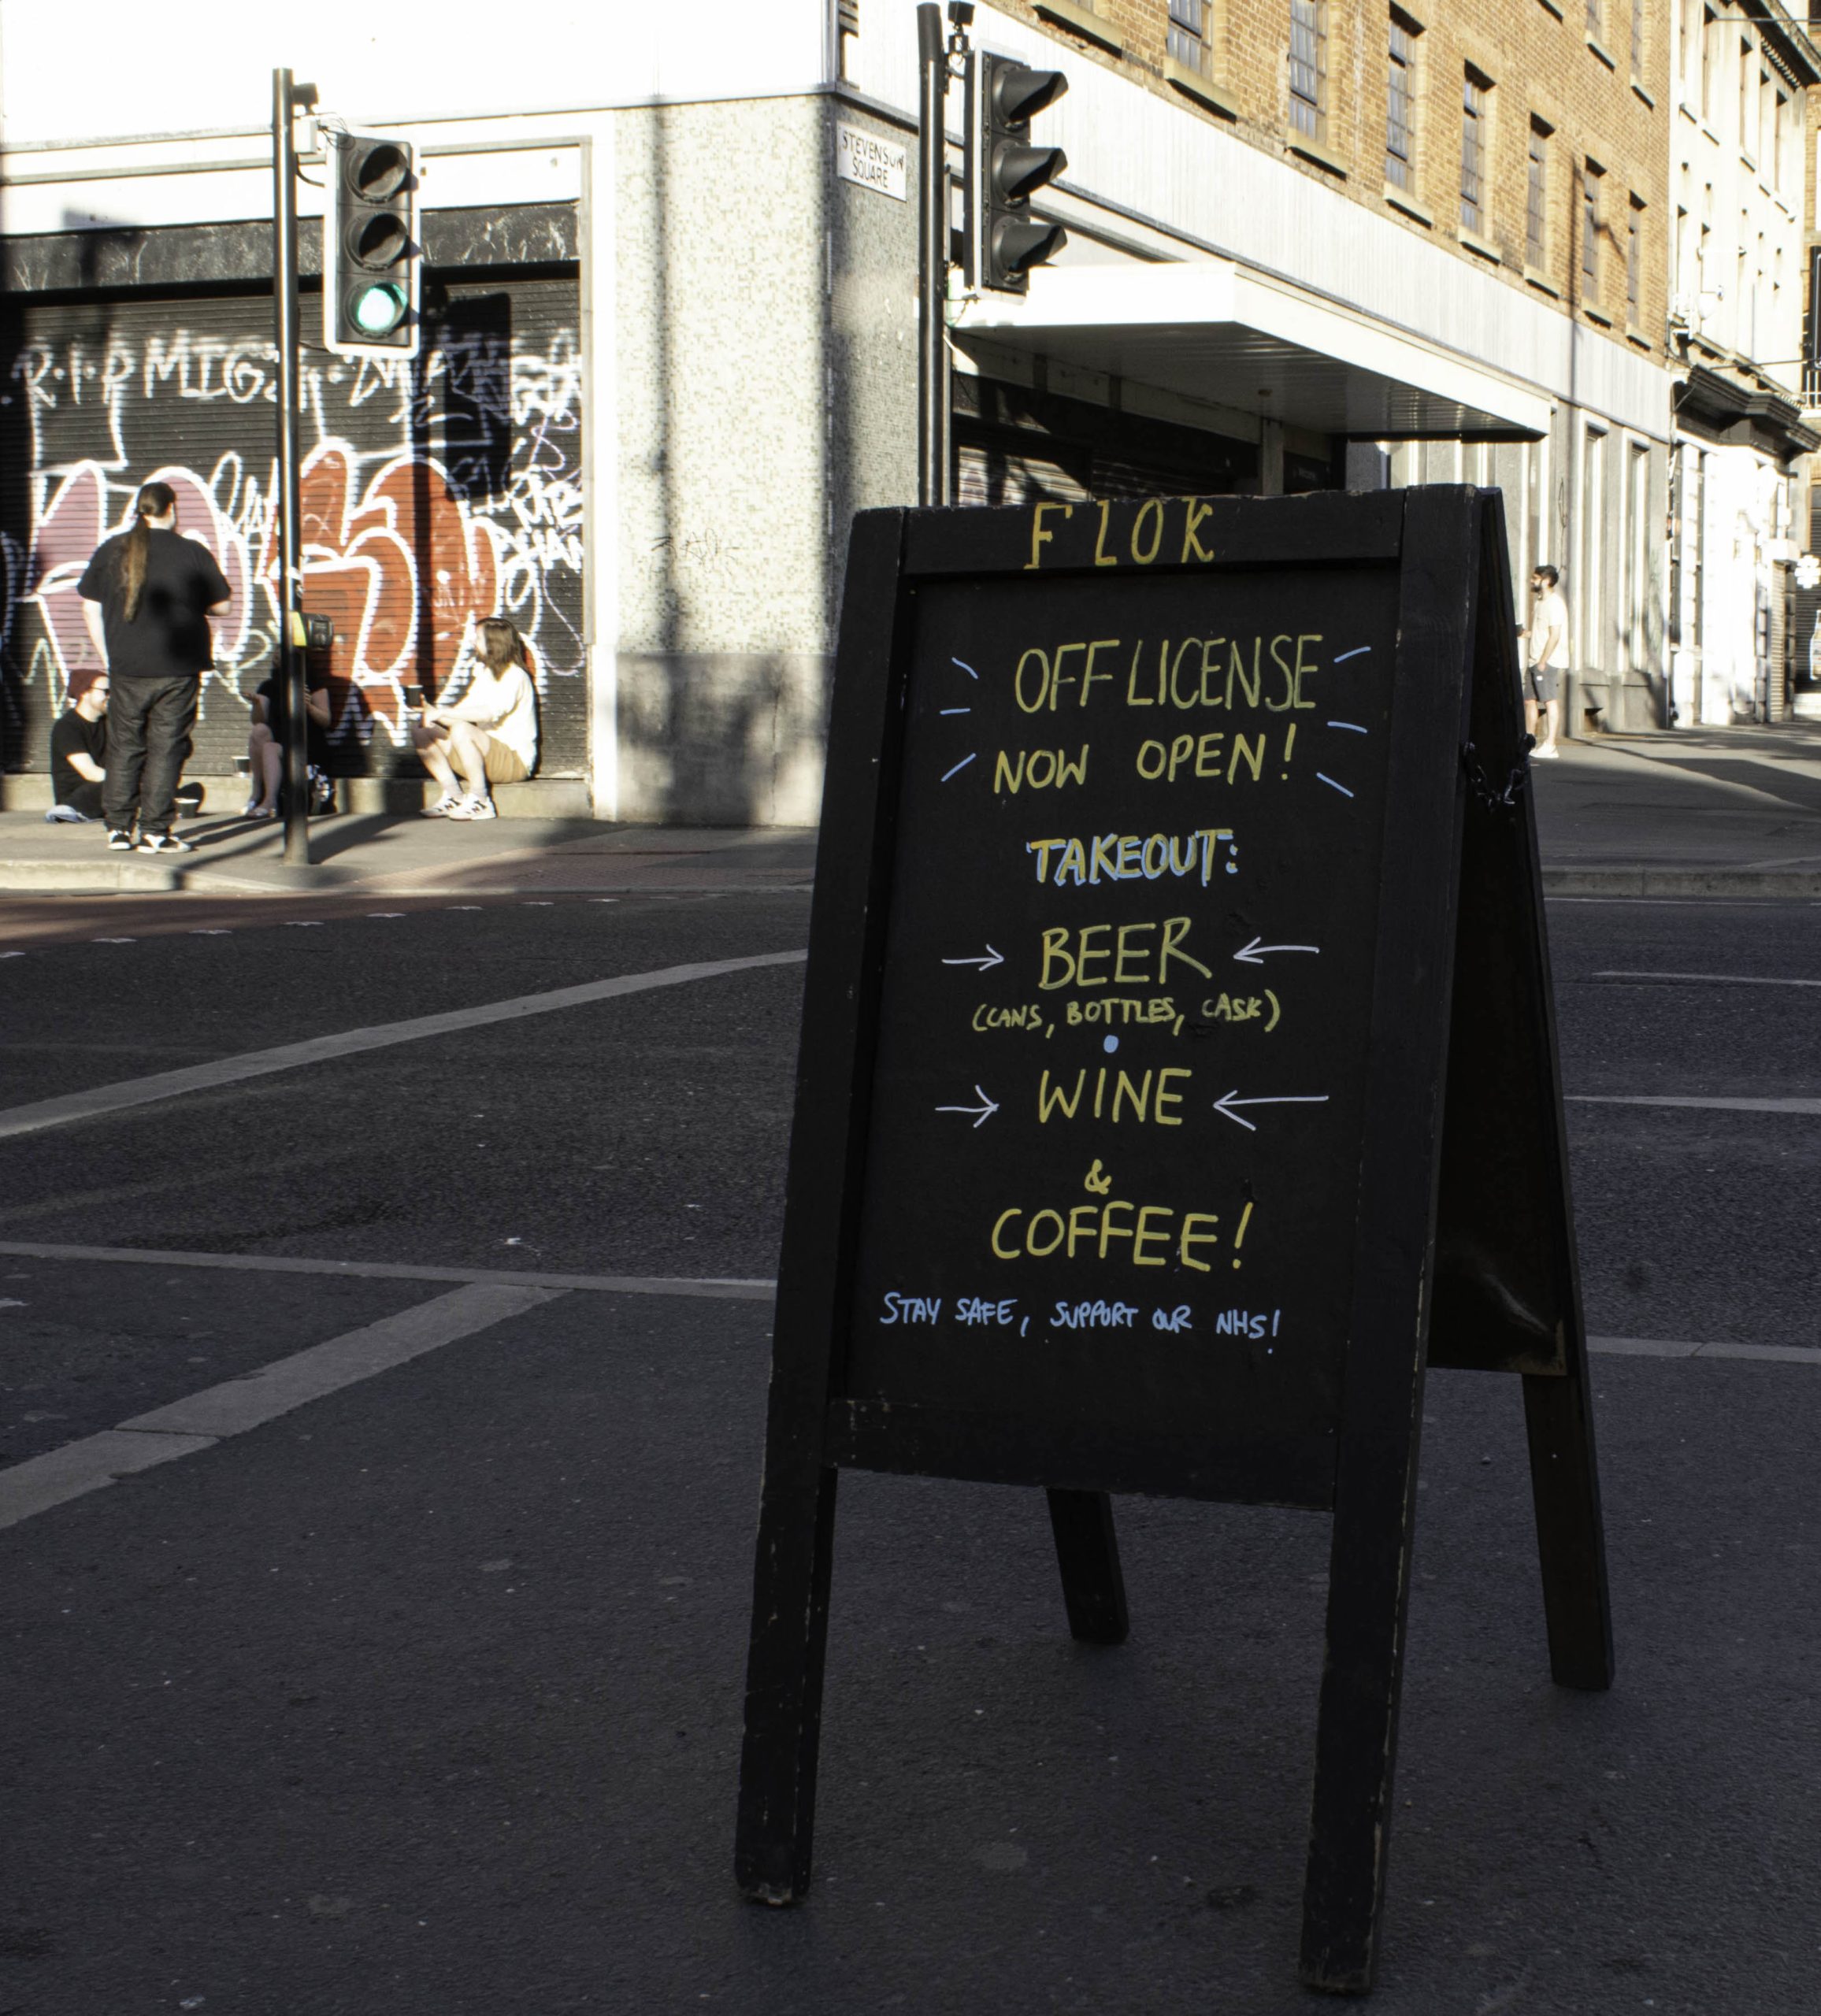 STEVENSON
SQUARE
R.I.P MIGS
FLOK
OFF LICENSE
NOW OPEN!
TAKEOUT:
BEER
(CANS, BOTTLES, CASK)
WINE
&
COFFEE!
STAY SAFE, SUPPORT OUR NHS!